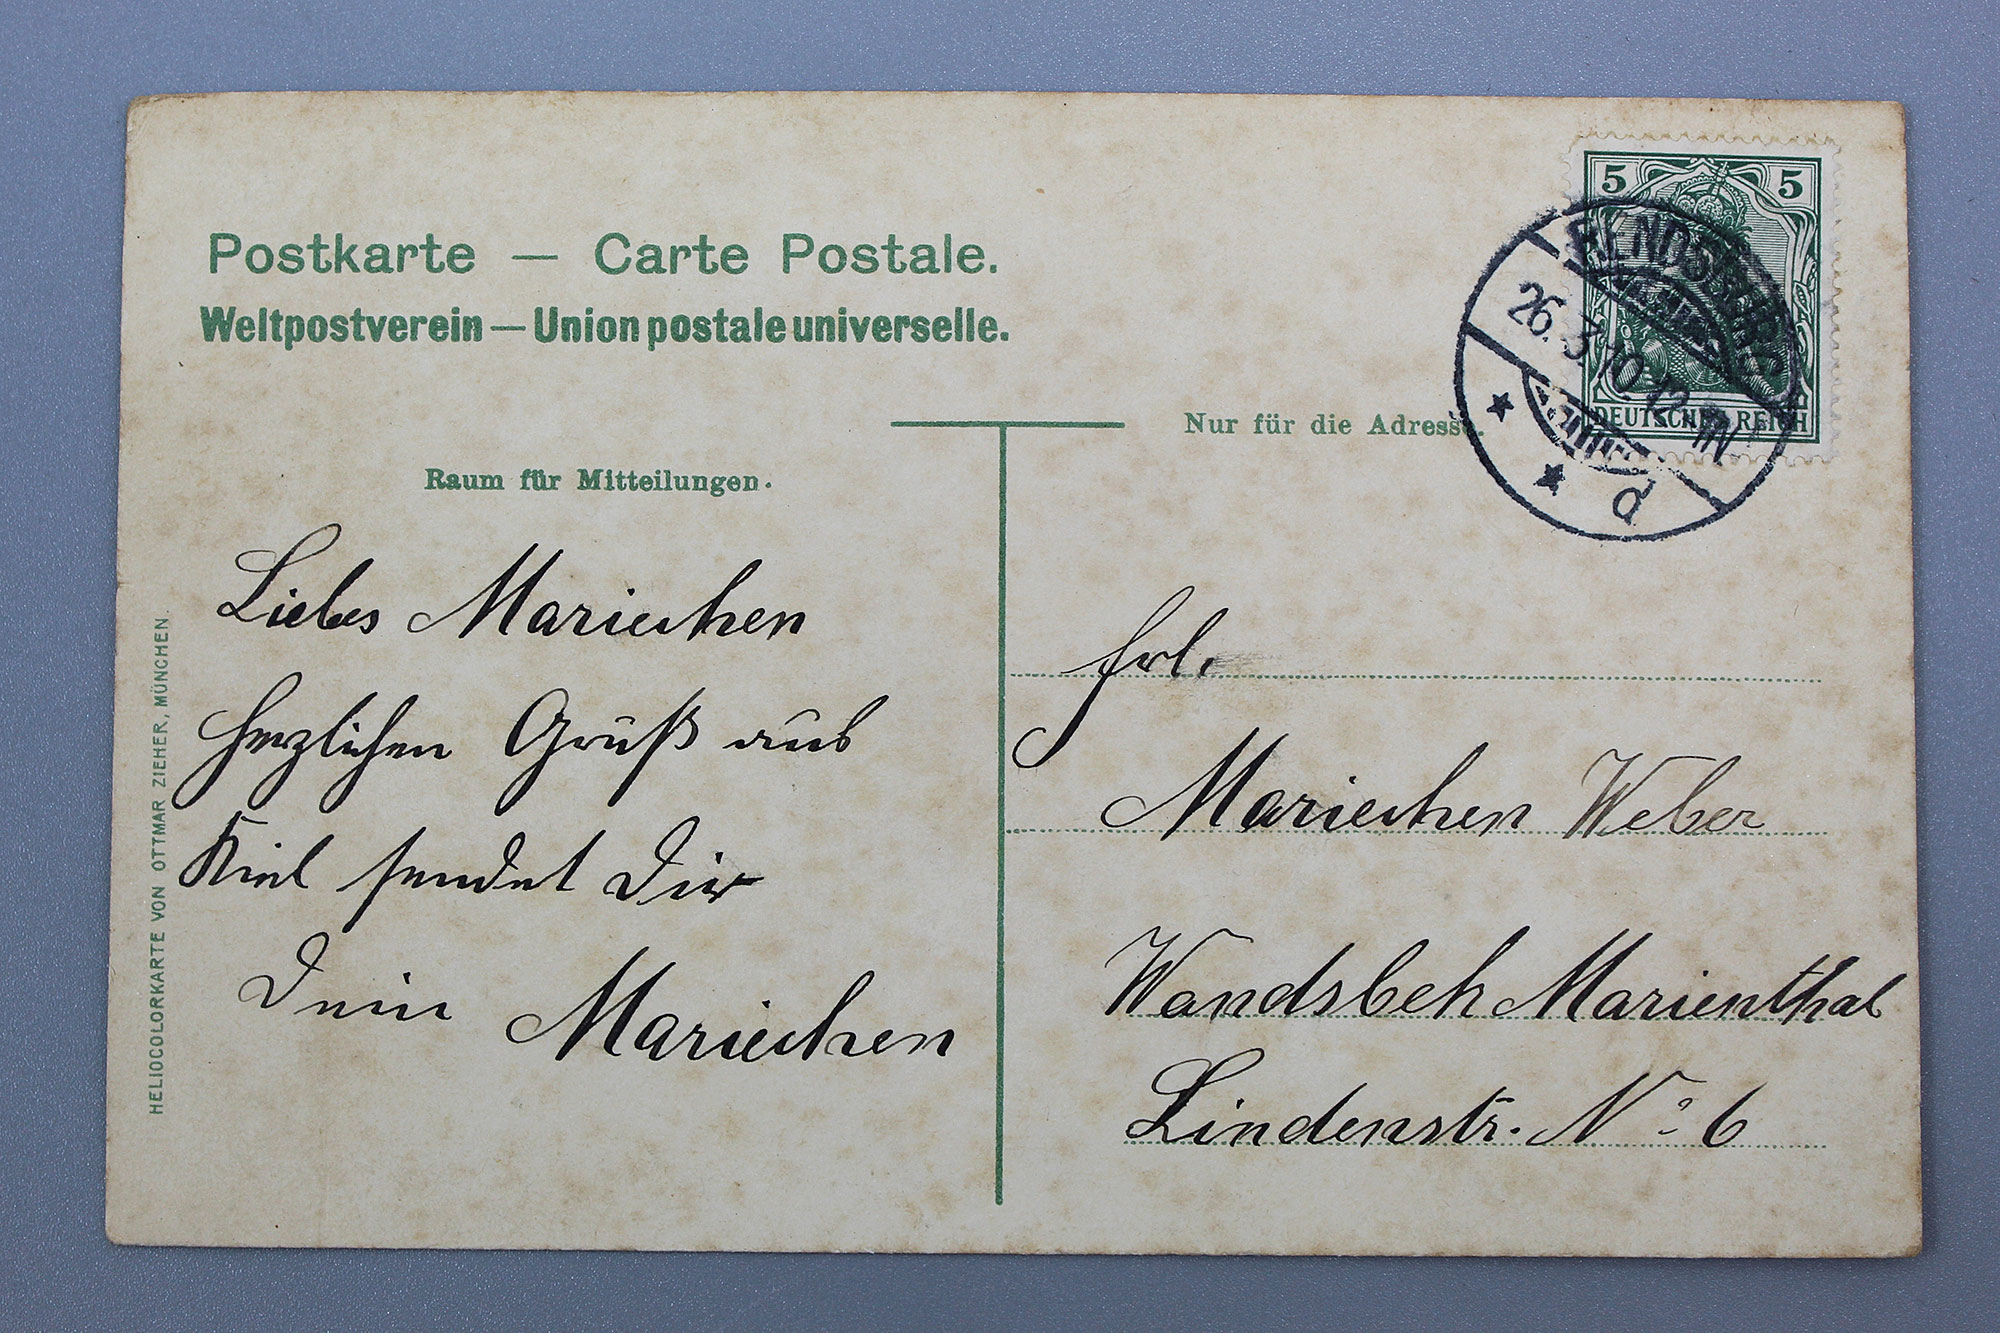 Postkarte — Carte Postale.
Weltpostverein — Union postale universelle.
5 5
DEUTSCHES REICH
RENDSBURG
26.3.10.12-1N
d
Nur für die Adresse.
Raum für Mitteilungen.
Liebes Mariechen
herzlichen Gruß aus
Kiel sendet Dir
Dein Mariechen
Frl.
Mariechen Weber
Wandsbek Marienthal
Lindenstr. No 6
HELIOCOLORKARTE VON OTTMAR ZIEHER, MÜNCHEN.